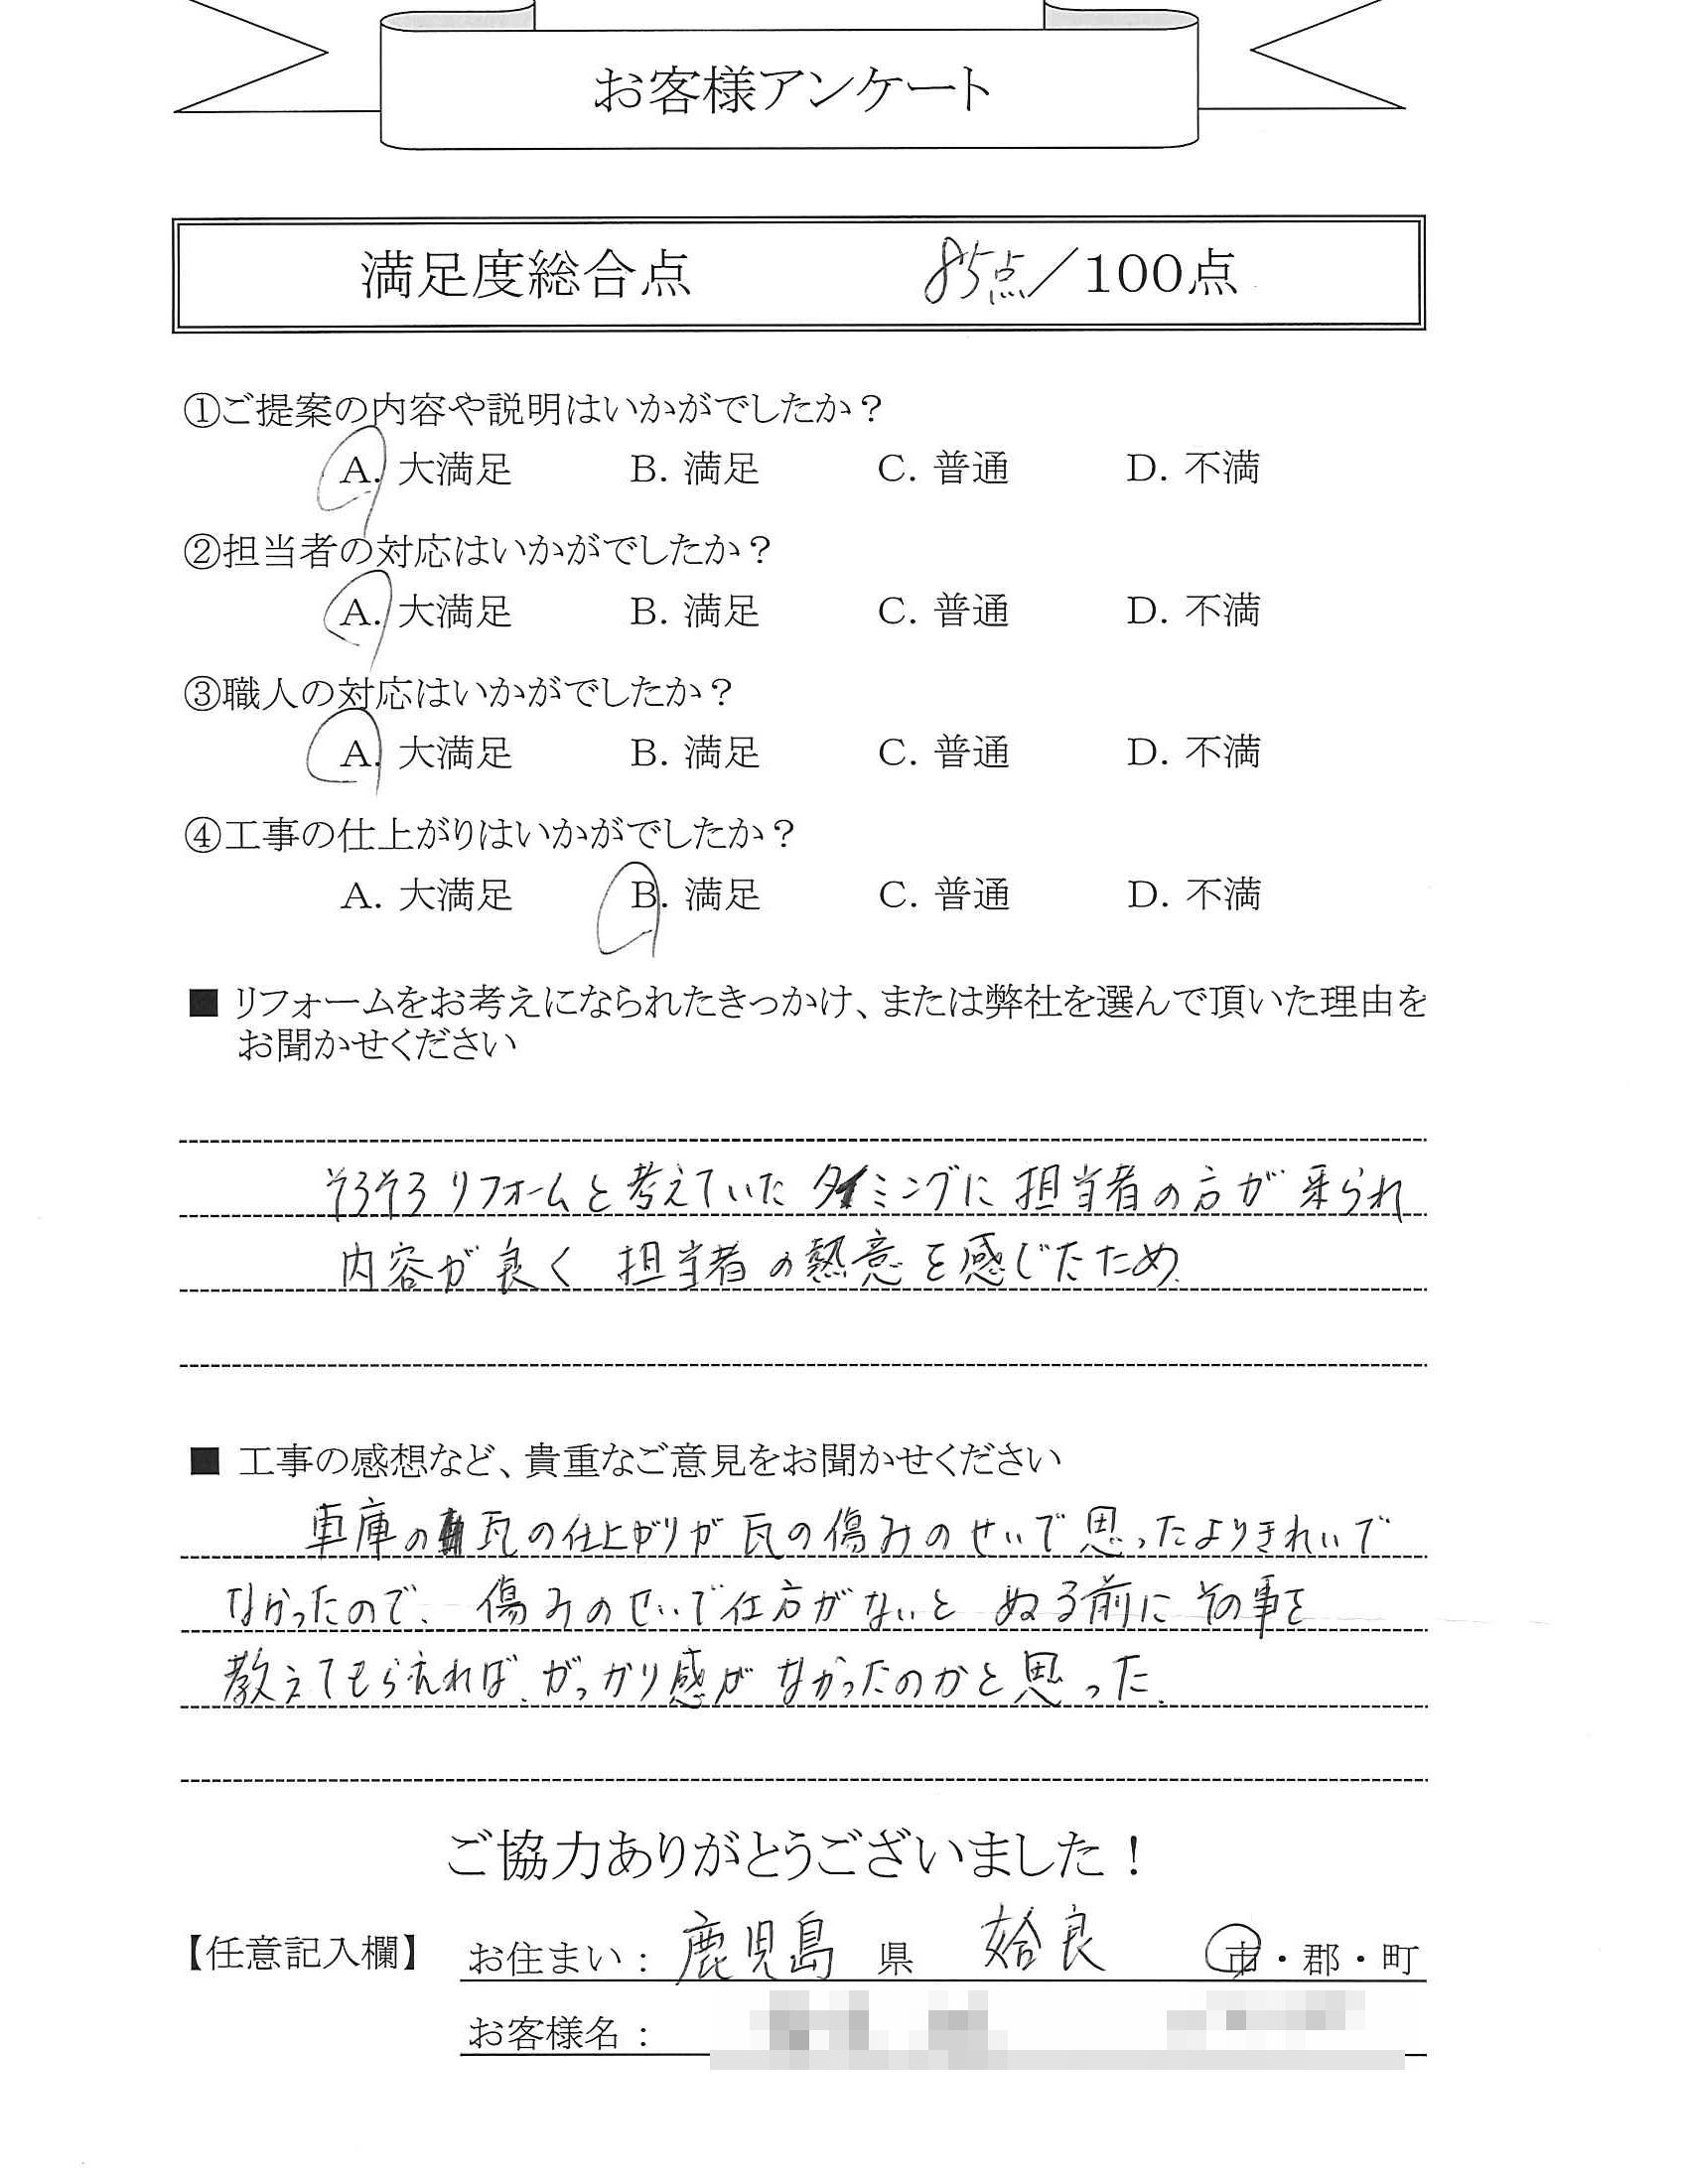 お客様アンケート
満足度総合点 85点／100点
①ご提案の内容や説明はいかがでしたか？
A. 大満足 B. 満足 C. 普通 D. 不満
②担当者の対応はいかがでしたか？
A. 大満足 B. 満足 C. 普通 D. 不満
③職人の対応はいかがでしたか？
A. 大満足 B. 満足 C. 普通 D. 不満
④工事の仕上がりはいかがでしたか？
A. 大満足 B. 満足 C. 普通 D. 不満
■ リフォームをお考えになられたきっかけ、または弊社を選んで頂いた理由を
お聞かせください
そろそろリフォームと考えていたタイミングに担当者の方が来られ
内容が良く 担当者の熱意を感じたため.
■ 工事の感想など、貴重なご意見をお聞かせください
車庫の瓦の仕上がりが瓦の傷みのせいで思ったよりきれいで
なかったので、傷みのせいで仕方がないと ぬる前にその事を
教えてもらえれば、がっかり感がなかったのかと思った.
ご協力ありがとうございました！
【任意記入欄】 お住まい：鹿児島 県 姶良 市・郡・町
お客様名：